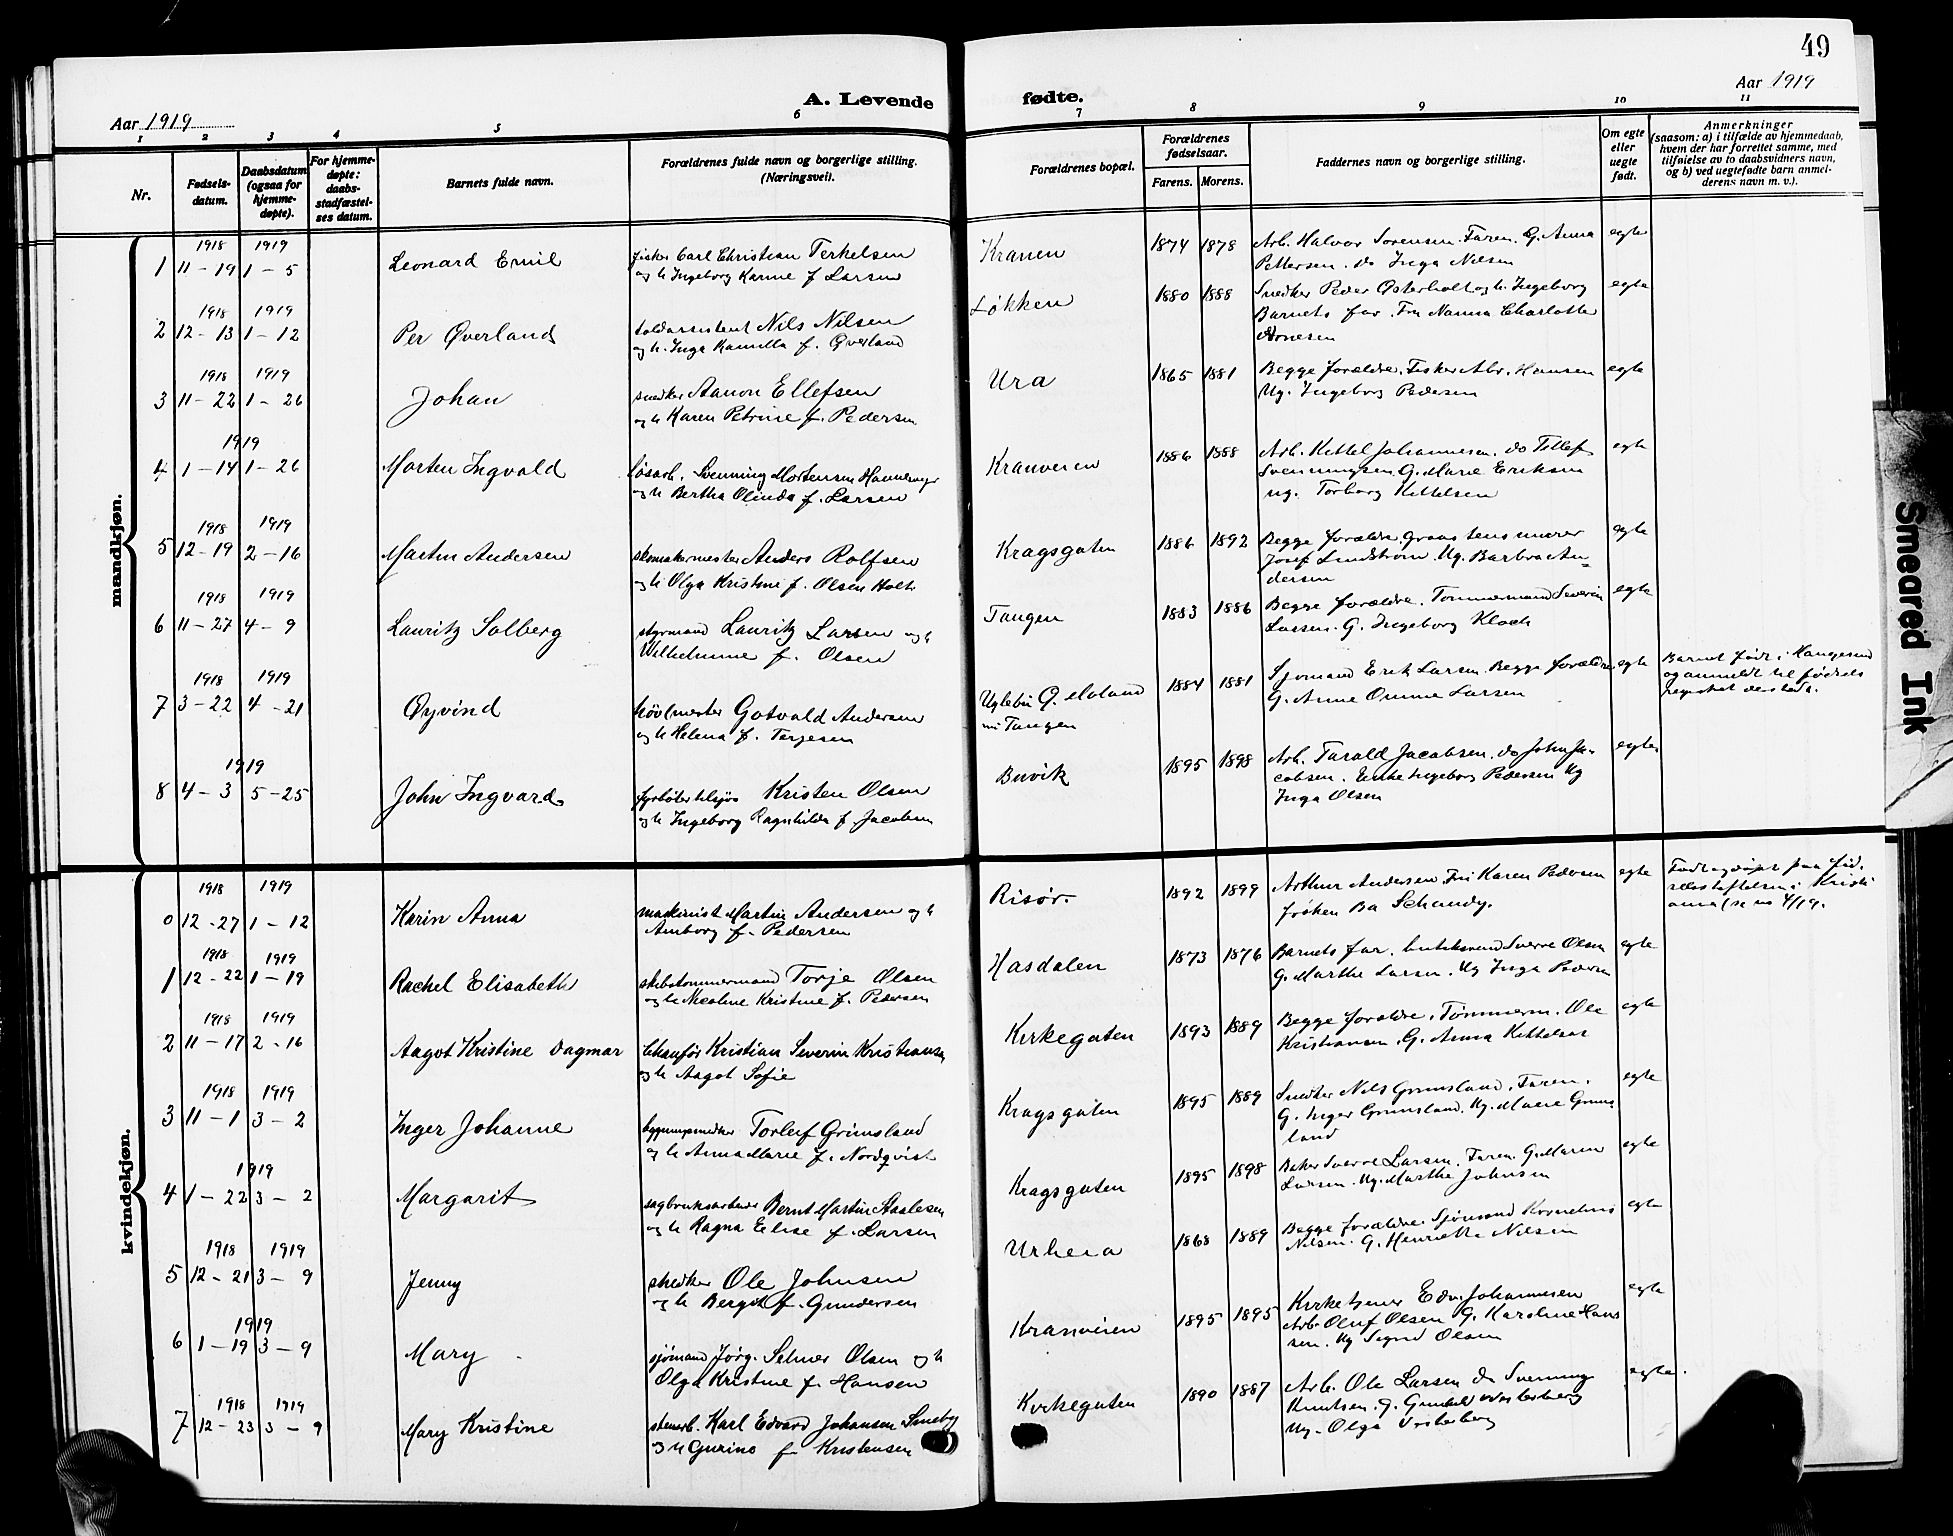 49
Aar 1919
A. Levende
fødte.
Aar 1919
1 2 3 4 5 6 7 8 9 10 11
Nr.
Fødsels-
datum.
Daabsdatum
(ogsaa for
hjemme-
døpte).
For hjemme-
døpte:
daabs-
stadfæstel-
ses datum.
Barnets fulde navn.
Forældrenes fulde navn og borgerlige stilling.
(Næringsvei).
Forældrenes bopæl.
Forældrenes
fødselsaar.
Farens. Morens.
Faddernes navn og borgerlige stilling.
Om egte
eller
uegte
født.
Anmerkninger
(saasom: a) i tilfælde av hjemmedaab,
hvem der har forrettet samme, med
tilføielse av to daabsvidners navn,
og b) ved uegtefødte barn anmel-
derens navn m. v.).
mandkjøn.
1918 1919
1 11-19 1-5 Leonard Emil fisker Carl Christian Terkelsen Kranen 1874 1878 Arb. Halvor Sorensen. Faren. G. Anna egte
og h Ingeborg Karine f Larsen Pettersen. do Inga Nilsen
1918 1919
2 12-13 1-12 Per Øverland toldassistent Nils Nilsen Løkken 1880 1888 Snedker Peder Østerholt og h. Ingeborg egte
og h. Inga Kamilla f. Øverland Barnets far. Fru Nanna Charlotte
Arnesen
1918 1919
3 11-22 1-26 Johan snedker Aanon Ellefsen Ura 1865 1881 Begge forældre. Fisker Abr. Hansen egte
og h Karen Petrine f. Pedersen Ug. Ingeborg Pedersen
1919
4 1-14 1-26 Morten Ingvald løsarb. Svenning Mortensen Kranveien 1886 1888 Arb. Kittel Johannesen. do Tellef egte
og h Bertha Olinda f. Larsen Svenningsen. G. Marie Eriksen
ug. Torborg Kittelsen
1918 1919
5 12-19 2-16 Martin Andersen skomakermester Anders Rolfsen Kragsgaten 1886 1892 Begge forældre. Graastensmurer egte
og h Olga Kristine f. Olsen Holt Josef Lindstrøm Ug. Barbra An-
dersen
1918 1919
6 11-27 4-9 Lauritz Solberg styrmand Lauritz Larsen og h Tangen 1883 1886 Begge forældre. Tømmermand Severin egte
Wilhelmine f. Olsen Larsen. G. Ingeborg Kloch
1918 1919
7 3-22 4-21 Øyvind Gotvald Andersen 1884 1881 Sjømand Erik Larsen. Begge forældre egte Barnet født i Haugesund
og h Helena f. Terjesen Tangen G. Anne Larsen og anmeldt til fødsels
registret dersteds.
1919
8 4-3 5-25 John Ingvard fyrbøter tilsjøs Kristen Olsen Buvik 1895 1898 Arb. Tarald Jacobsen. do John Ja- egte
og h Ingeborg Ragnhilda f. Jacobsen cobsen. Enke Ingeborg Pedersen Ug
Inga Olsen
kvindekjøn.
1918 1919
0 12-27 1-12 Karin Anna maskinist Martin Andersen og h Risør. 1892 1899 Arthur Andersen. Fru Karen Pedersen egte Født og døpt paa fød-
Amborg f. Pedersen frøken Schandy. selsstiftelsen i Kristi-
ania
1918 1919
1 12-22 1-19 Rachel Elisabeth skibstømmermand Torje Olsen Hasdalen 1873 1876 Barnets far. Sverre Olsen egte
og h Nicoline Kristine f. Pedersen G. Marthe Larsen. Ug Inga
1918 1919
2 11-17 2-16 Aagot Kristine Dagmar Chauför Kristian Severin Kristiansen Kirkegaten 1893 1889 Begge forældre. Tømmerm. Ole egte
og h Aagot Sofie Kristiansen. G. Anna Kittelsen
1918 1919
3 11-1 3-2 Inger Johanne bygningssnedker Torleif Grimsland Kragsgaten 1895 1889 Snedker Nils Grimsland. Faren. egte
og h Anna Marie f. Nordqvist G. Inger Grimsland. Ug. Marie Grims
land
1919
4 1-22 3-2 Margarit sagbruksarbeider Bernt Martin Staalesen Kragsgaten 1895 1898 Baker Sverre Larsen. Faren. G. Maren egte
og h Ragna Elise f. Larsen Larsen. Ug. Marthe Johnsen
1918 1919
5 12-21 3-9 Jenny snedker Ole Johnsen Urheia 1868 1889 Begge forældre. Sjømand Kornelius egte
og h Bergit f. Gundersen Nilsen. G. Henriette Nilsen
1919
6 1-19 3-9 Mary sjømand Jørg. Selmer Olsen og h Kranveien 1895 1895 Kirketjener Edv. Johannesen egte
Olga Kristine f. Hansen Arb. Oluf Olsen G. Karoline Han
sen. Ug Signe Olsen
1918 1919
7 12-23 3-9 Mary Kristine Karl Edvard Johansen Kirkegaten 1890 1887 Arb. Ole Larsen do Svenning egte
og h Gurine f. Kristensen Knutsen. G. Gunhild Vesterberg
Ug. Olga Vesterberg
Smeared Ink